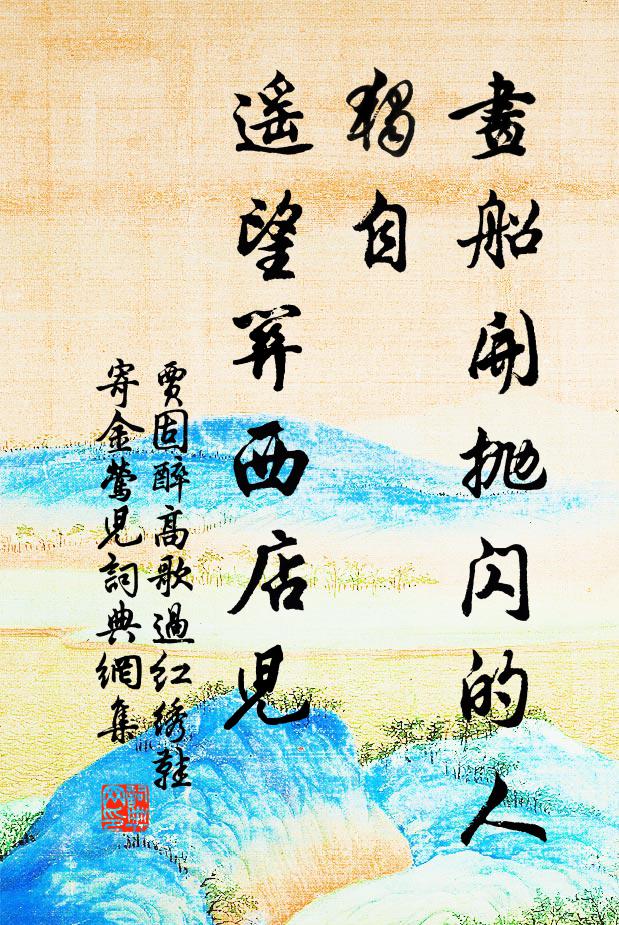 畫船開抛閃的人
獨自
遥望笄西店児
賈固醉高歌過红綉鞋
寄金鶯児詞典網集